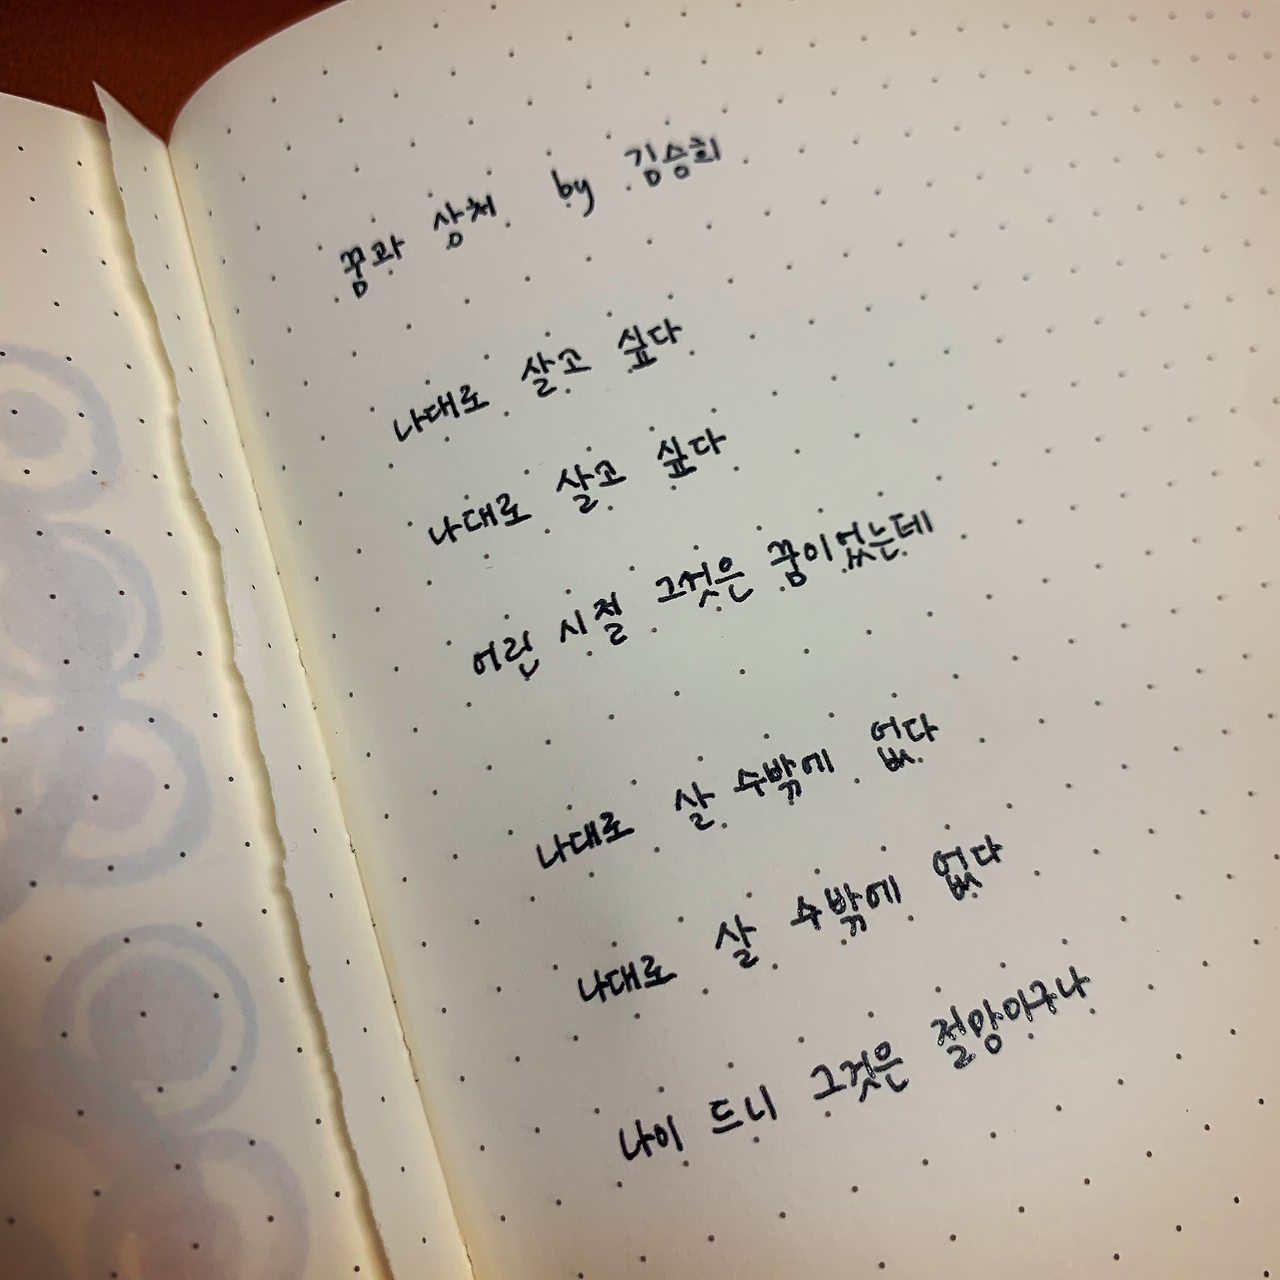 꿈과 상처 by 김승희
나대로 살고 싶다
나대로 살고 싶다
어린 시절 그것은 꿈이었는데
나대로 살 수밖에 없다
나대로 살 수밖에 없다
나이 드니 그것은 절망이구나